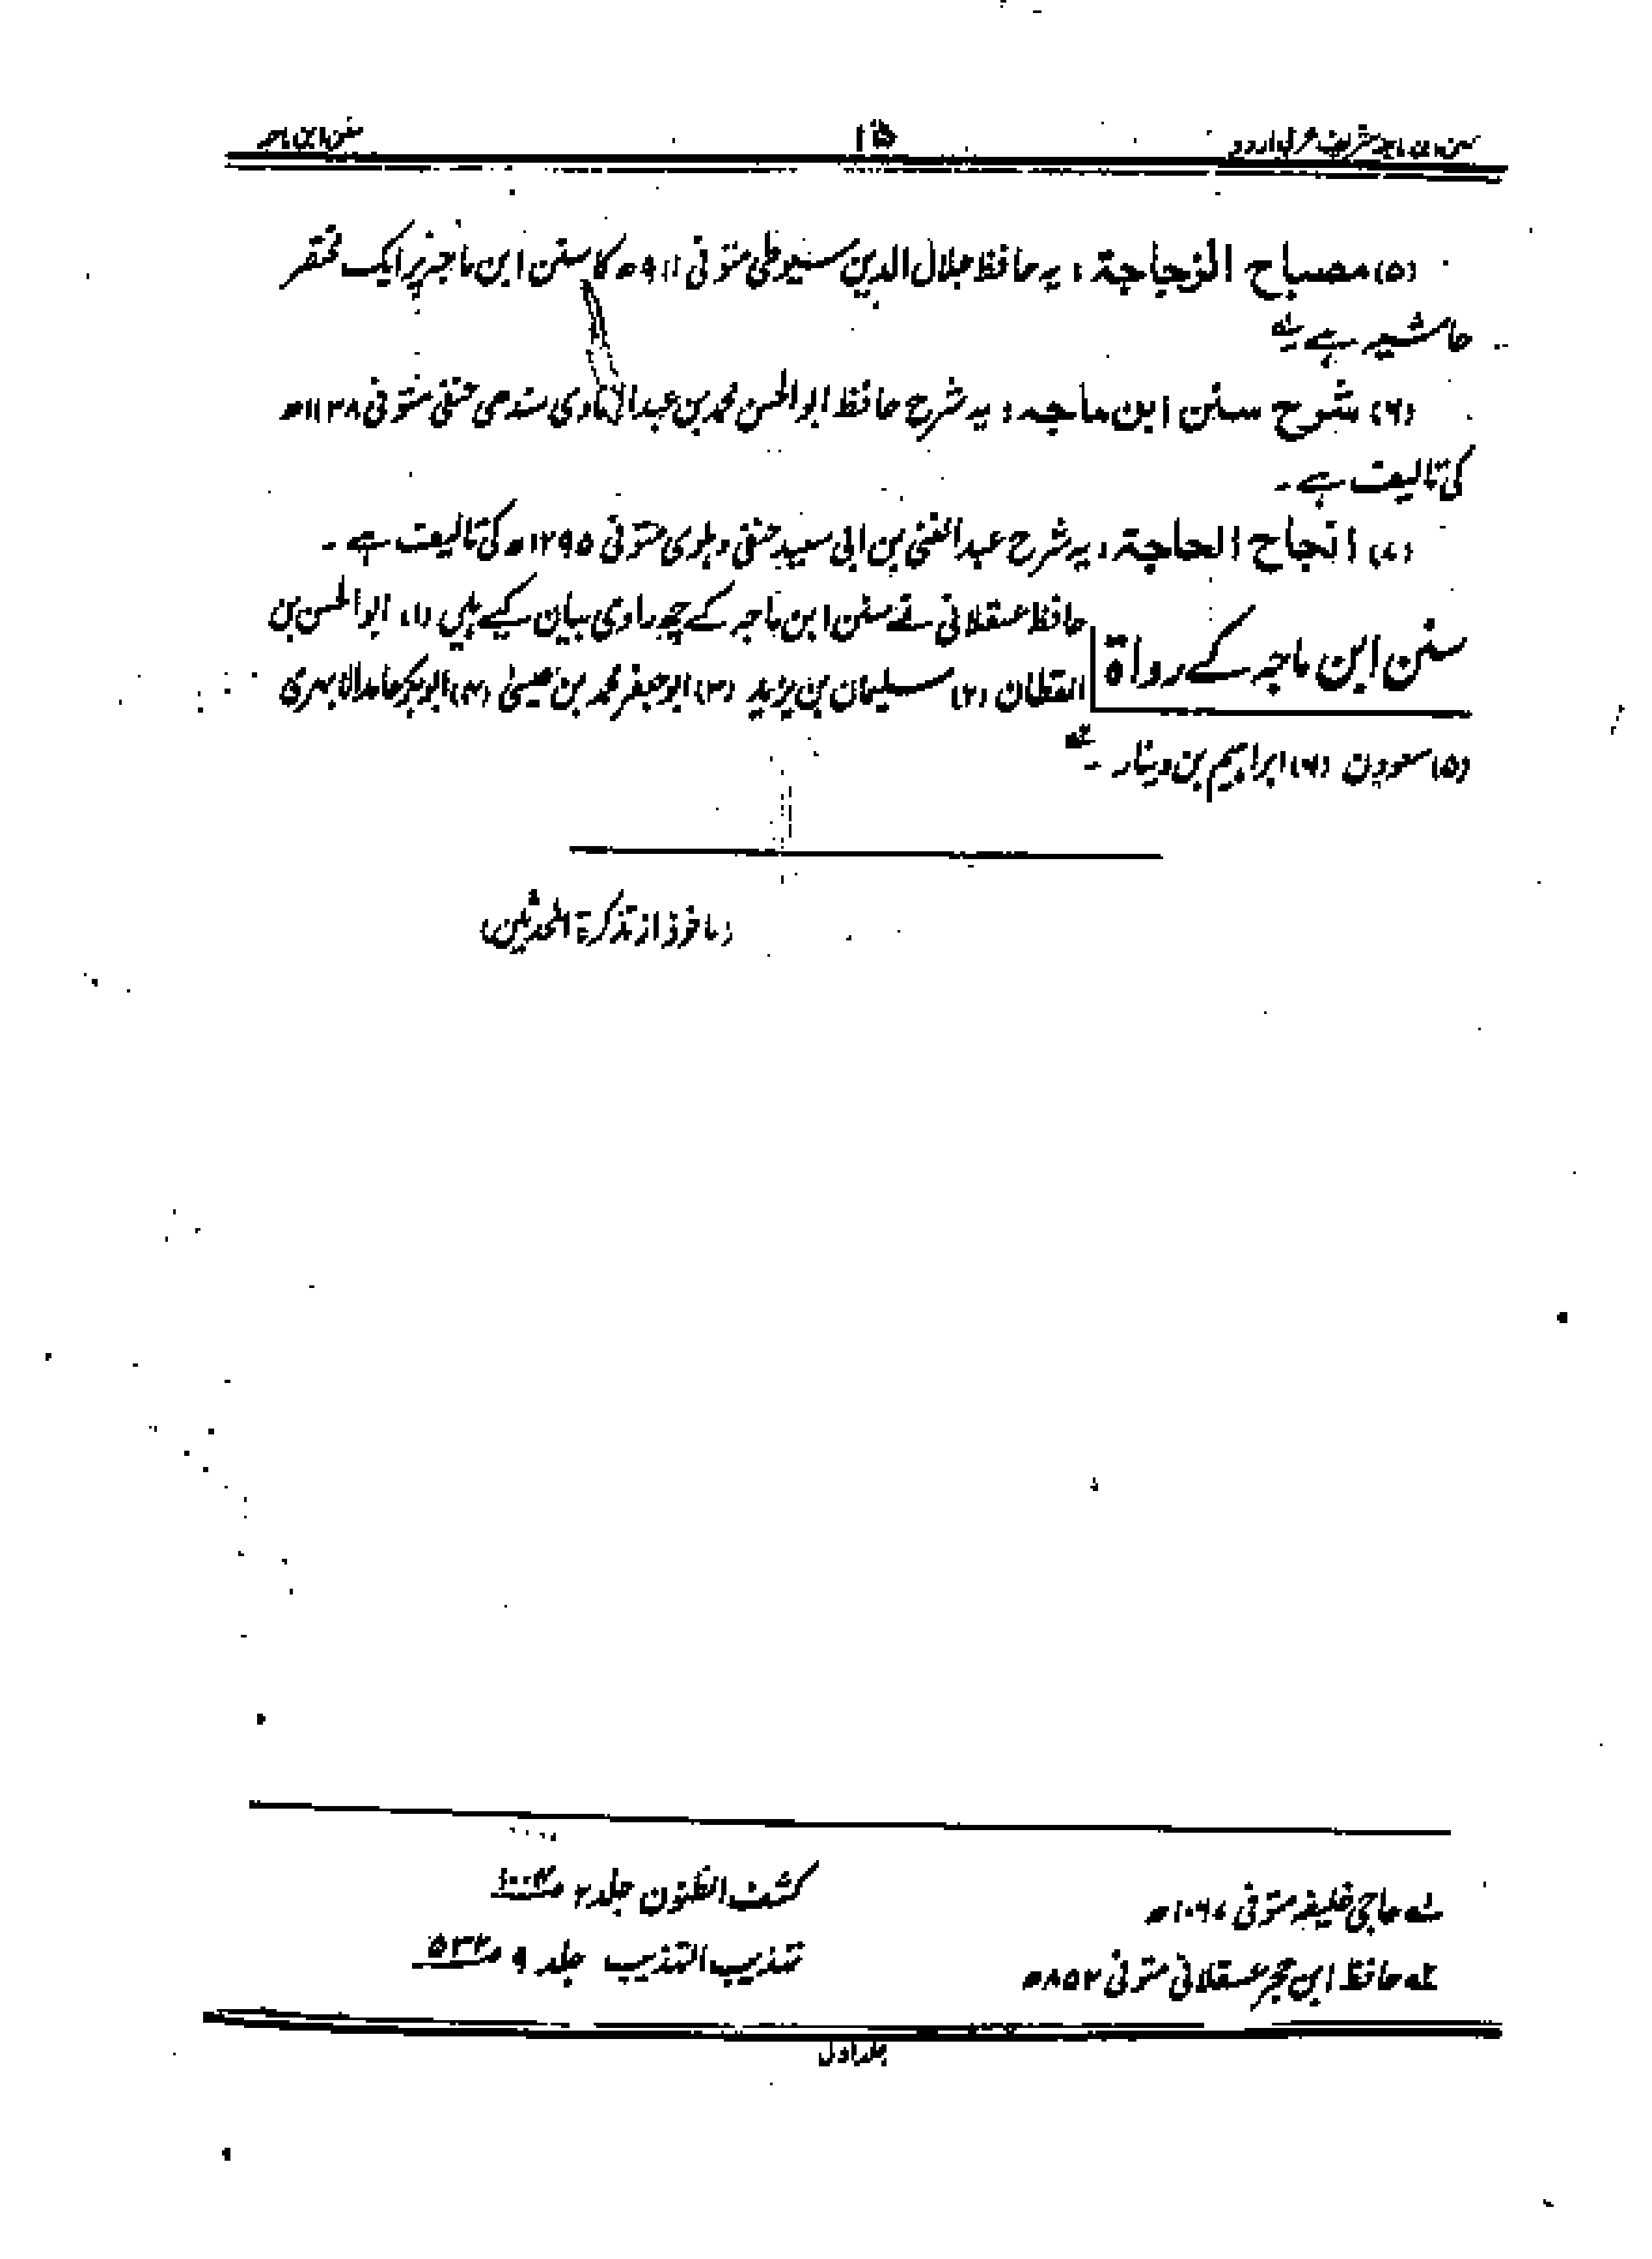 سنن ابن ماجہ شریف عربی اردو ۱۵ سنن ابن ماجہ
(۵) مصباح الزجاجۃ : یہ حافظ جلال الدین سیوطی متوفی ۹۱۱ھ کا سنن ابن ماجہ پر ایک مختصر
حاشیہ ہے ۔ؒلہ
(۶) شرح سنن ابن ماجہ : یہ شرح حافظ ابوالحسن محمد بن عبدالہادی سندھی حنفی متوفی ۱۱۳۸ھ
کی تالیف ہے ۔
(۷) انجاح الحاجۃ : یہ شرح عبدالغنی بن ابی سعید حنفی دہلوی متوفی ۱۲۹۵ھ کی تالیف ہے ۔
سنن ابن ماجہ کے رواۃ
حافظ عسقلانی نے سنن ابن ماجہ کے چھ راوی بیان کیے ہیں (۱) ابوالحسن بن
القطان (۲) سلیمان بن یزید (۳) ابوجعفر محمد بن عیسیٰ (۴) ابوبکر حامد الابہری
(۵) سعدون (۶) ابراہیم بن دینار ۔ٗ
(ماخوذ از تذکرۃ المحدثین)
لہ حاجی خلیفہ متوفی ۱۰۶۷ھ کشف الظنون جلد ۲ ص ۱۰۰۴
لہ حافظ ابن حجر عسقلانی متوفی ۸۵۲ھ تہذیب التہذیب جلد ۹ ص ۵۳۲
جلد اول